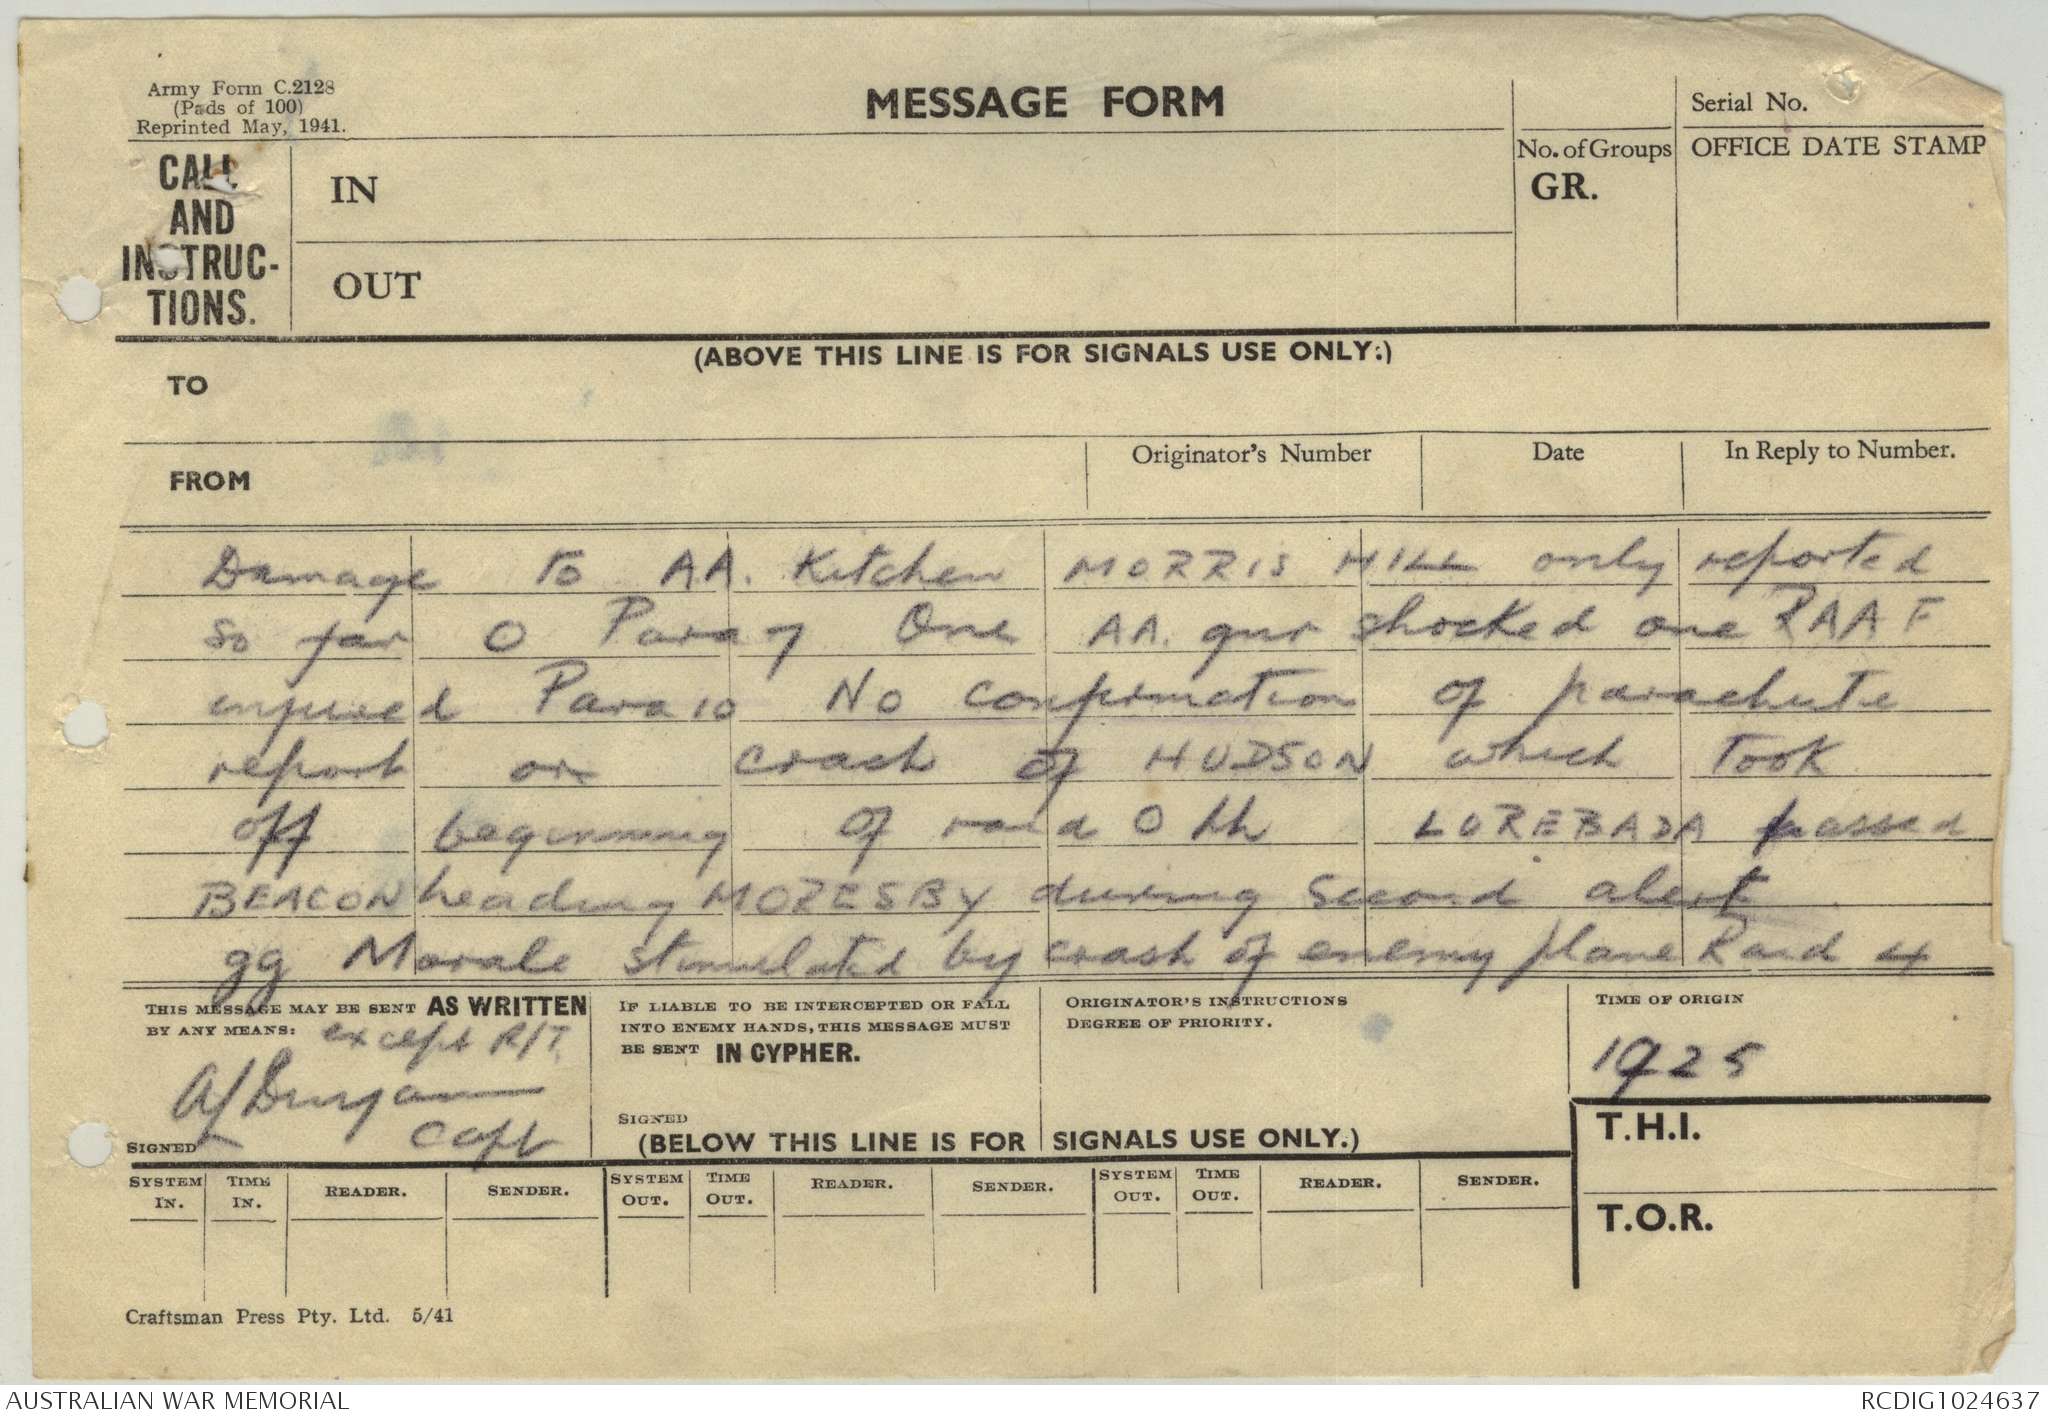 Army Form C.2128
(Pads of 100)
Reprinted May, 1941.
MESSAGE FORM
Serial No.
No. of Groups
GR.
OFFICE DATE STAMP
CALL
AND
INSTRUC-
TIONS.
IN
OUT
(ABOVE THIS LINE IS FOR SIGNALS USE ONLY.)
TO
FROM
Originator's Number
Date
In Reply to Number.
Damage to AA. Kitchen MORRIS HILL only reported
so far O Para 7 One AA. gnr shocked one RAAF
injured Para 10 No confirmation of parachute
report or crash of HUDSON which took
off beginning of raid O hh LOREBADA passed
BEACON heading MORESBY during second alert
gg Morale stimulated by crash of enemy plane Raid 4
THIS MESSAGE MAY BE SENT AS WRITTEN
BY ANY MEANS:
except R/T.
Capt
SIGNED
IF LIABLE TO BE INTERCEPTED OR FALL
INTO ENEMY HANDS, THIS MESSAGE MUST
BE SENT IN CYPHER.
SIGNED
ORIGINATOR'S INSTRUCTIONS
DEGREE OF PRIORITY.
TIME OF ORIGIN
1925
(BELOW THIS LINE IS FOR SIGNALS USE ONLY.)
T.H.I.
T.O.R.
SYSTEM IN. TIME IN. READER. SENDER. SYSTEM OUT. TIME OUT. READER. SENDER. SYSTEM OUT. TIME OUT. READER. SENDER.
Craftsman Press Pty. Ltd. 5/41
AUSTRALIAN WAR MEMORIAL
RCDIG1024637